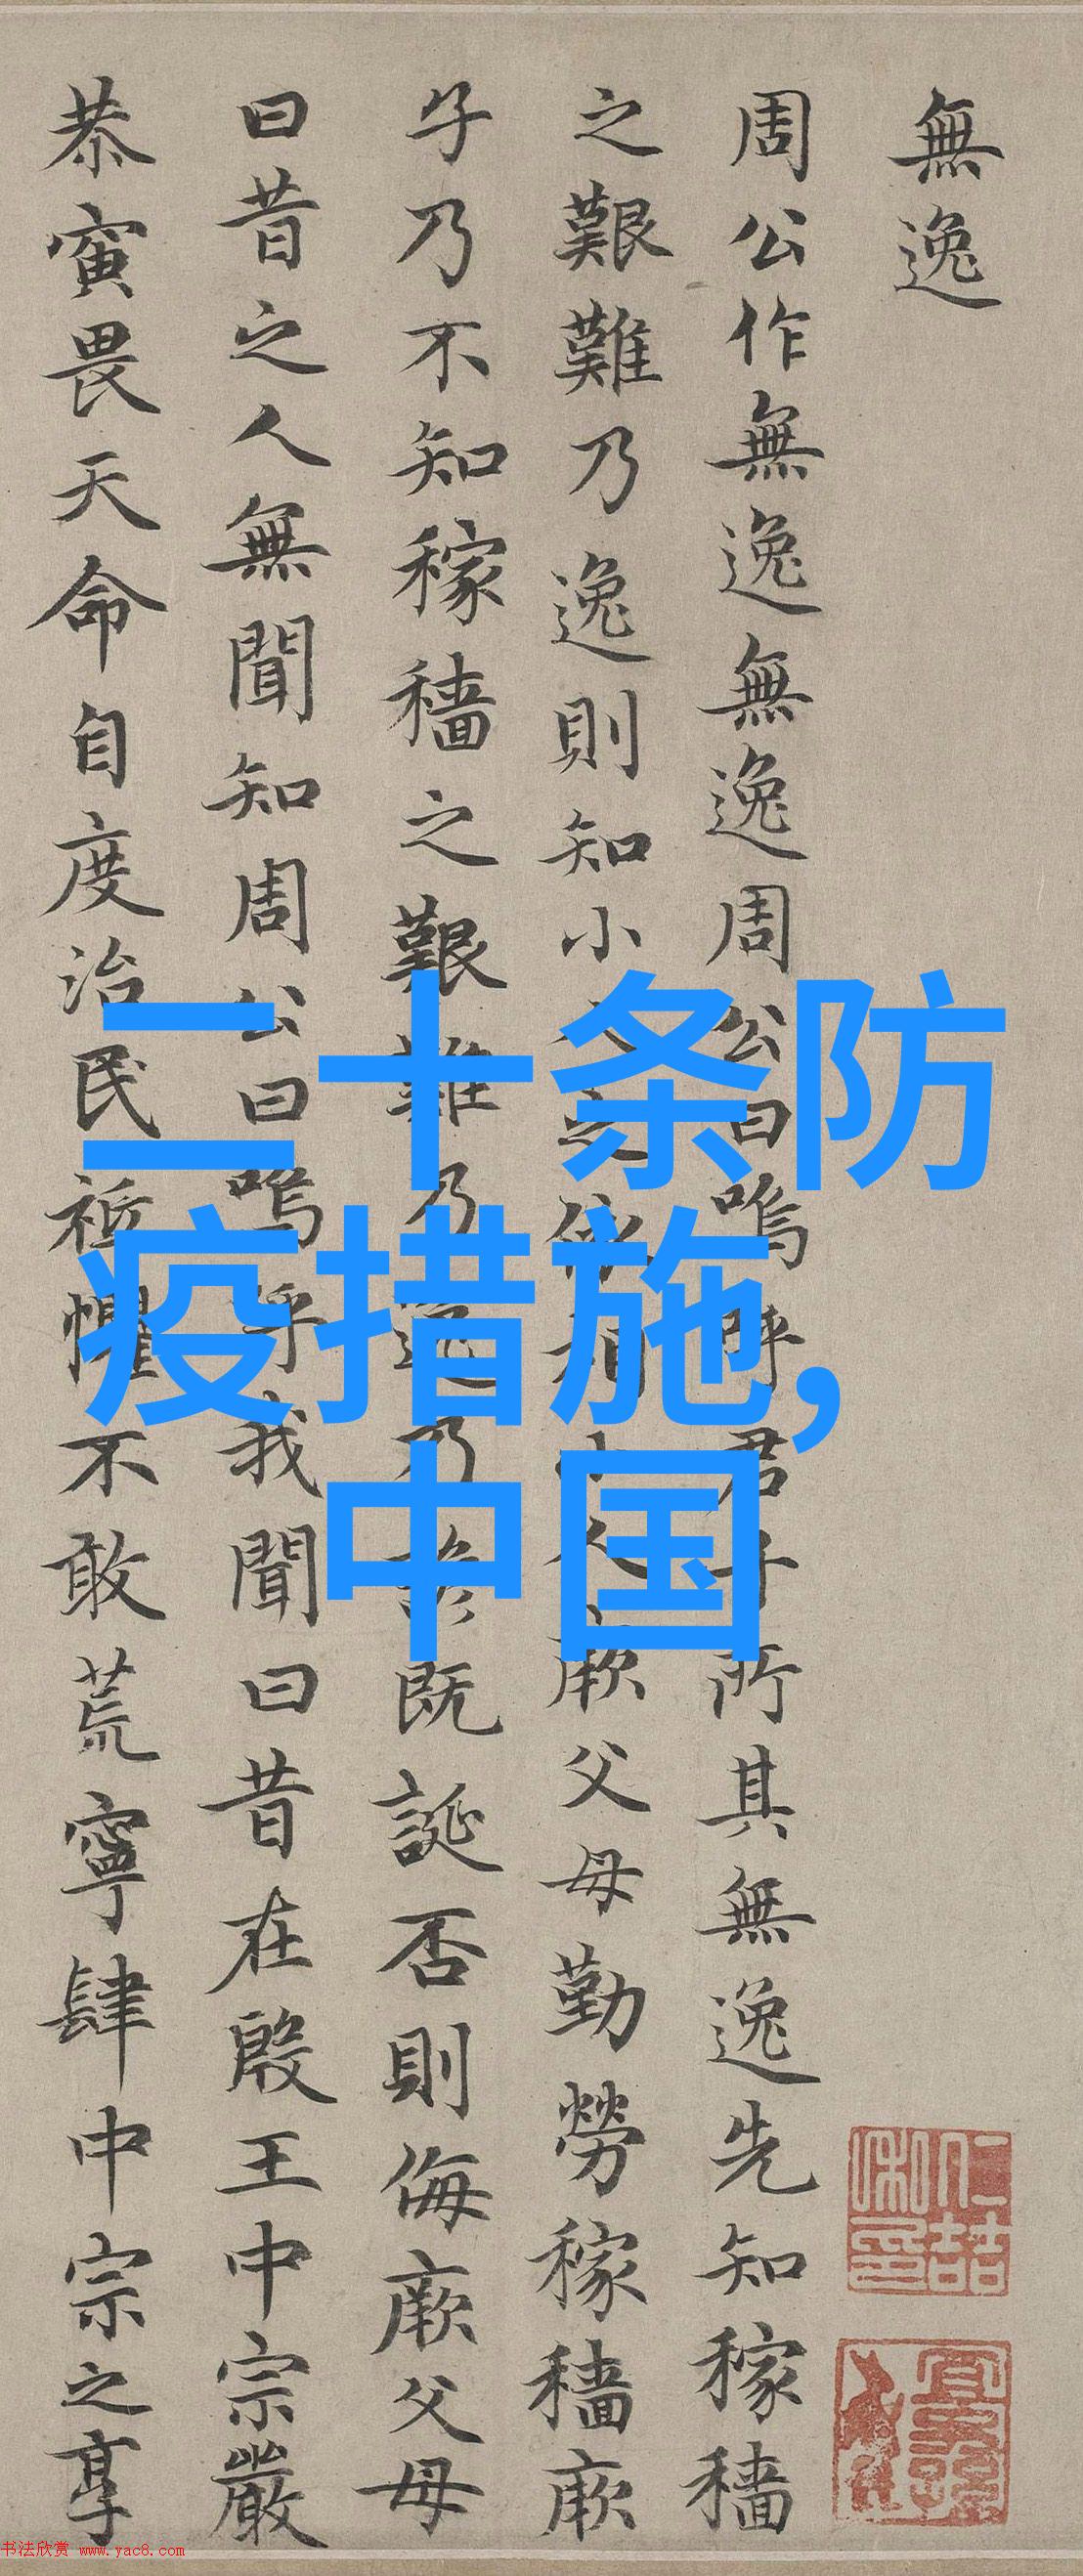 無逸
周公作無逸無逸周公曰嗚呼君子所其無逸先知稼穡
之艱難乃逸則知小人之依相小人厥父母勤勞稼穡厥
子乃不知稼穡之艱難乃逸乃諺既誕否則侮厥父母
曰昔之人無聞知周公曰嗚呼我聞曰昔在殷王中宗嚴
恭寅畏天命自度治民祗懼不敢荒寧肆中宗之享
二十条防
疫措施,
中国
书法欣赏 www.yac8.com